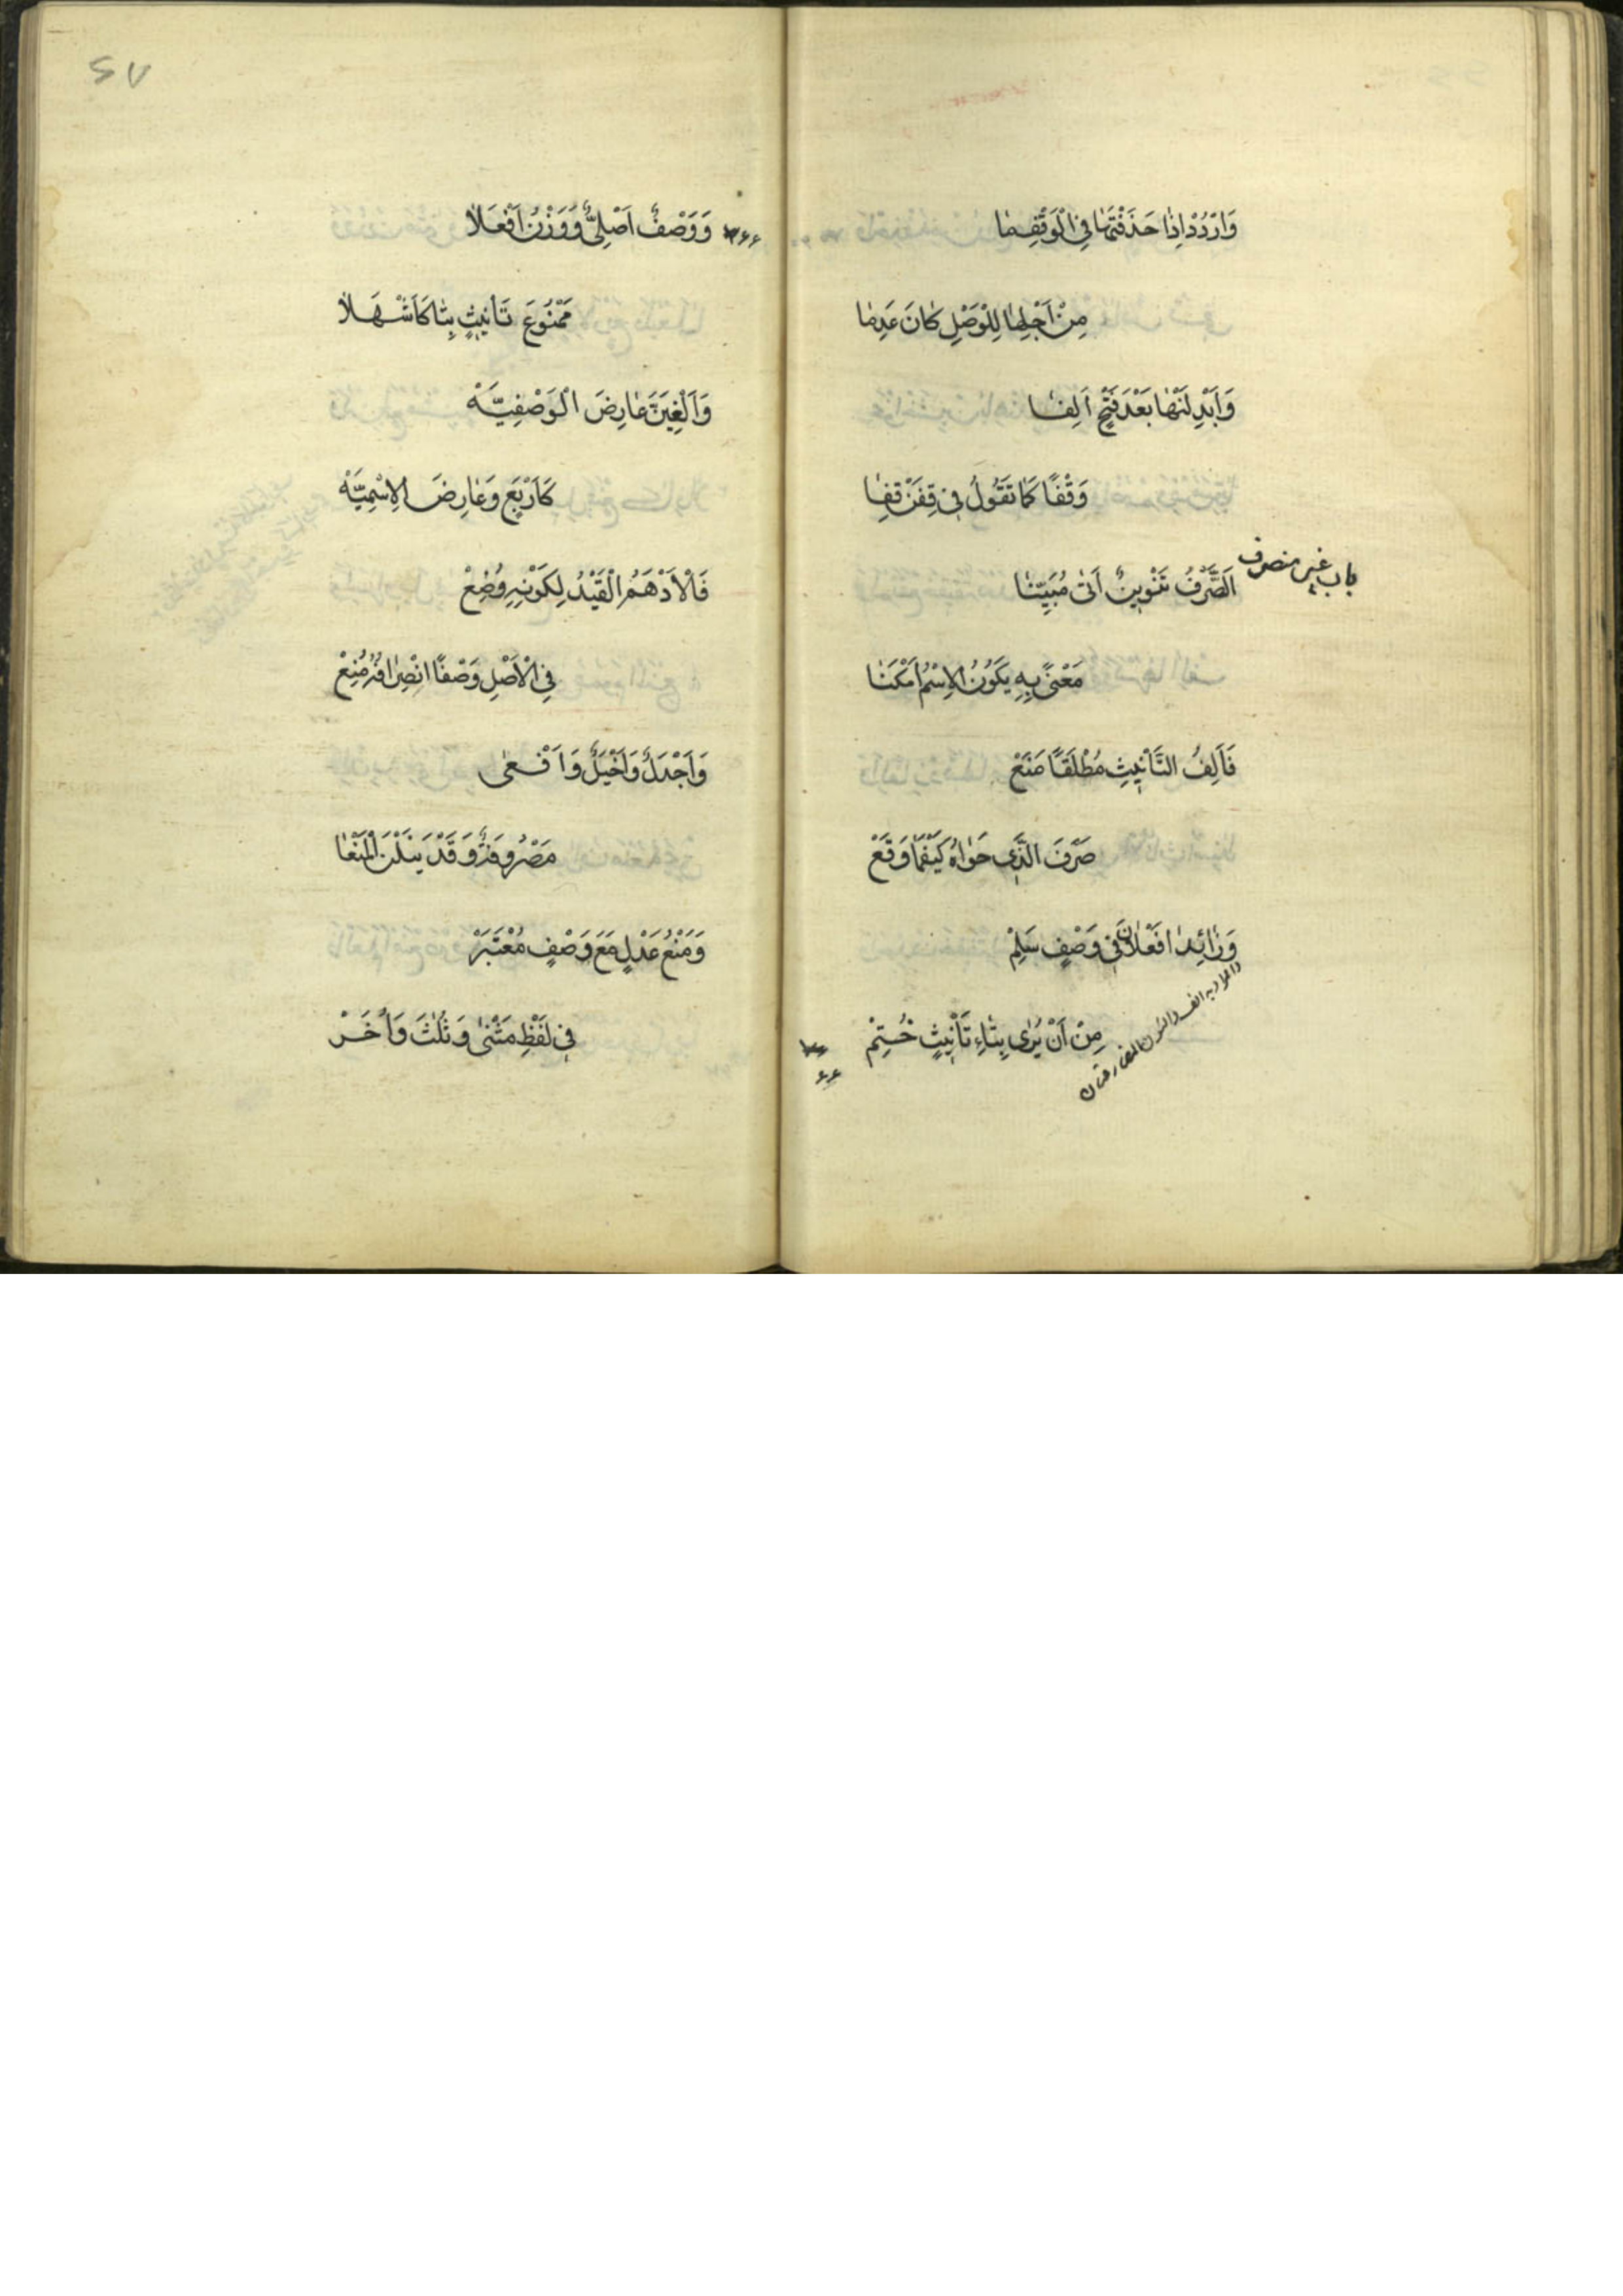 وَارْدُدْ اِذَا حَذَفْتَهَا فِي الْوَقْفِ مَا
مِنْ اَجْلِهَا لِلْوَصْلِ كَانَ عَدِمَا
وَاَبْدِلَنْهَا بَعْدَ فَتْحٍ اَلِفَا
وَقْفًا كَمَا تَقُولُ فِي قِفَنْ قِفَا
باب غير منصرف
اَلصَّرْفُ تَنْوِينٌ اَتٰى مُبَيِّنَا
مَعْنًى بِهِ يَكُونُ الِاسْمُ اَمْكَنَا
فَاَلِفُ التَّاْنِيثِ مُطْلَقًا مَنَعْ
صَرْفَ الَّذِي حَوَاهُ كَيْفَمَا وَقَعْ
وَزَائِدَا فَعْلَانَ فِي وَصْفٍ سَلِمْ
مِنْ اَنْ يُرٰى بِتَاءِ تَاْنِيثٍ خُتِمْ
والمراد به الف والنون
۶۶
۶۷
۶۶ وَوَصْفٌ اَصْلِيٌّ وَوَزْنُ اَفْعَلَا
مَمْنُوعَ تَاْنِيثٍ بِتَا كَاَشْهَلَا
وَاَلْغِيَنَّ عَارِضَ الْوَصْفِيَّهْ
كَاَرْبَعٍ وَعَارِضَ الِاسْمِيَّهْ
فَالْاَدْهَمُ الْقَيْدُ لِكَوْنِهِ وُضِعْ
فِي الْاَصْلِ وَصْفًا انْصِرَافُهُ مُنِعْ
وَاَجْدَلٌ وَاَخْيَلٌ وَاَفْعٰى
مَصْرُوفَةٌ وَقَدْ يَنَلْنَ الْمَنْعَا
وَمَنْعُ عَدْلٍ مَعَ وَصْفٍ مُعْتَبَرْ
فِي لَفْظِ مَثْنٰى وَثُلٰثَ وَاُخَرْ